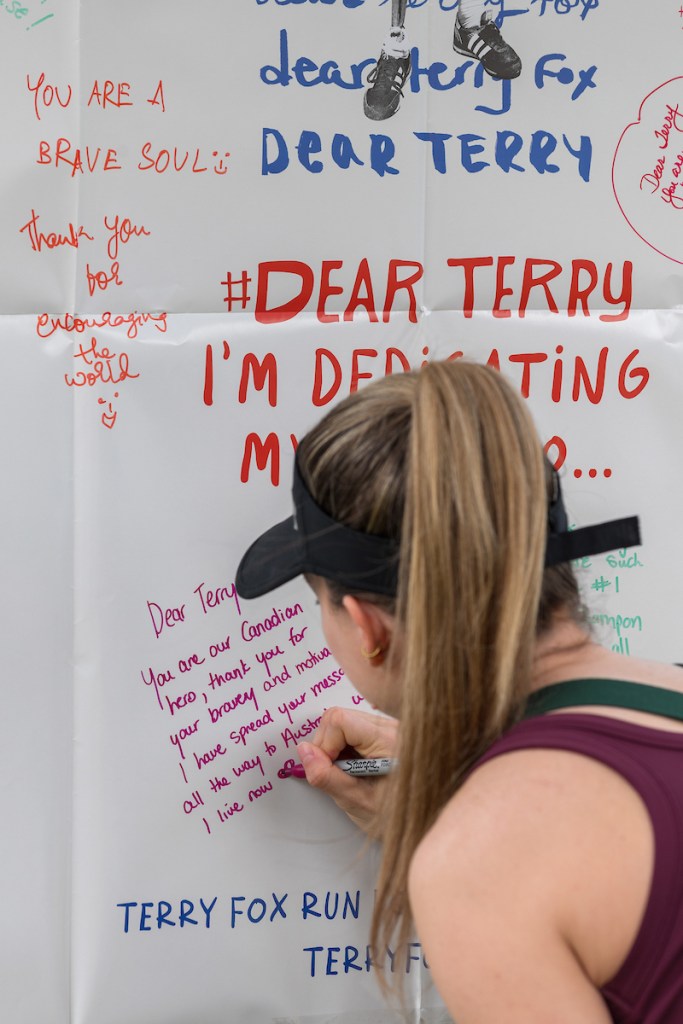 dear terry fox
DEAR TERRY
YOU ARE A
BRAVE SOUL
Thank you
for
encouraging
the
world
Dear Terry
you are
#DEAR TERRY
I'M DEDICATING
MY
...
such
#1
all
Dear Terry
You are our Canadian
hero, thank you for
your bravey and
I have spread your
all the way to
I live now
Sharpie
TERRY FOX RUN
TERRY